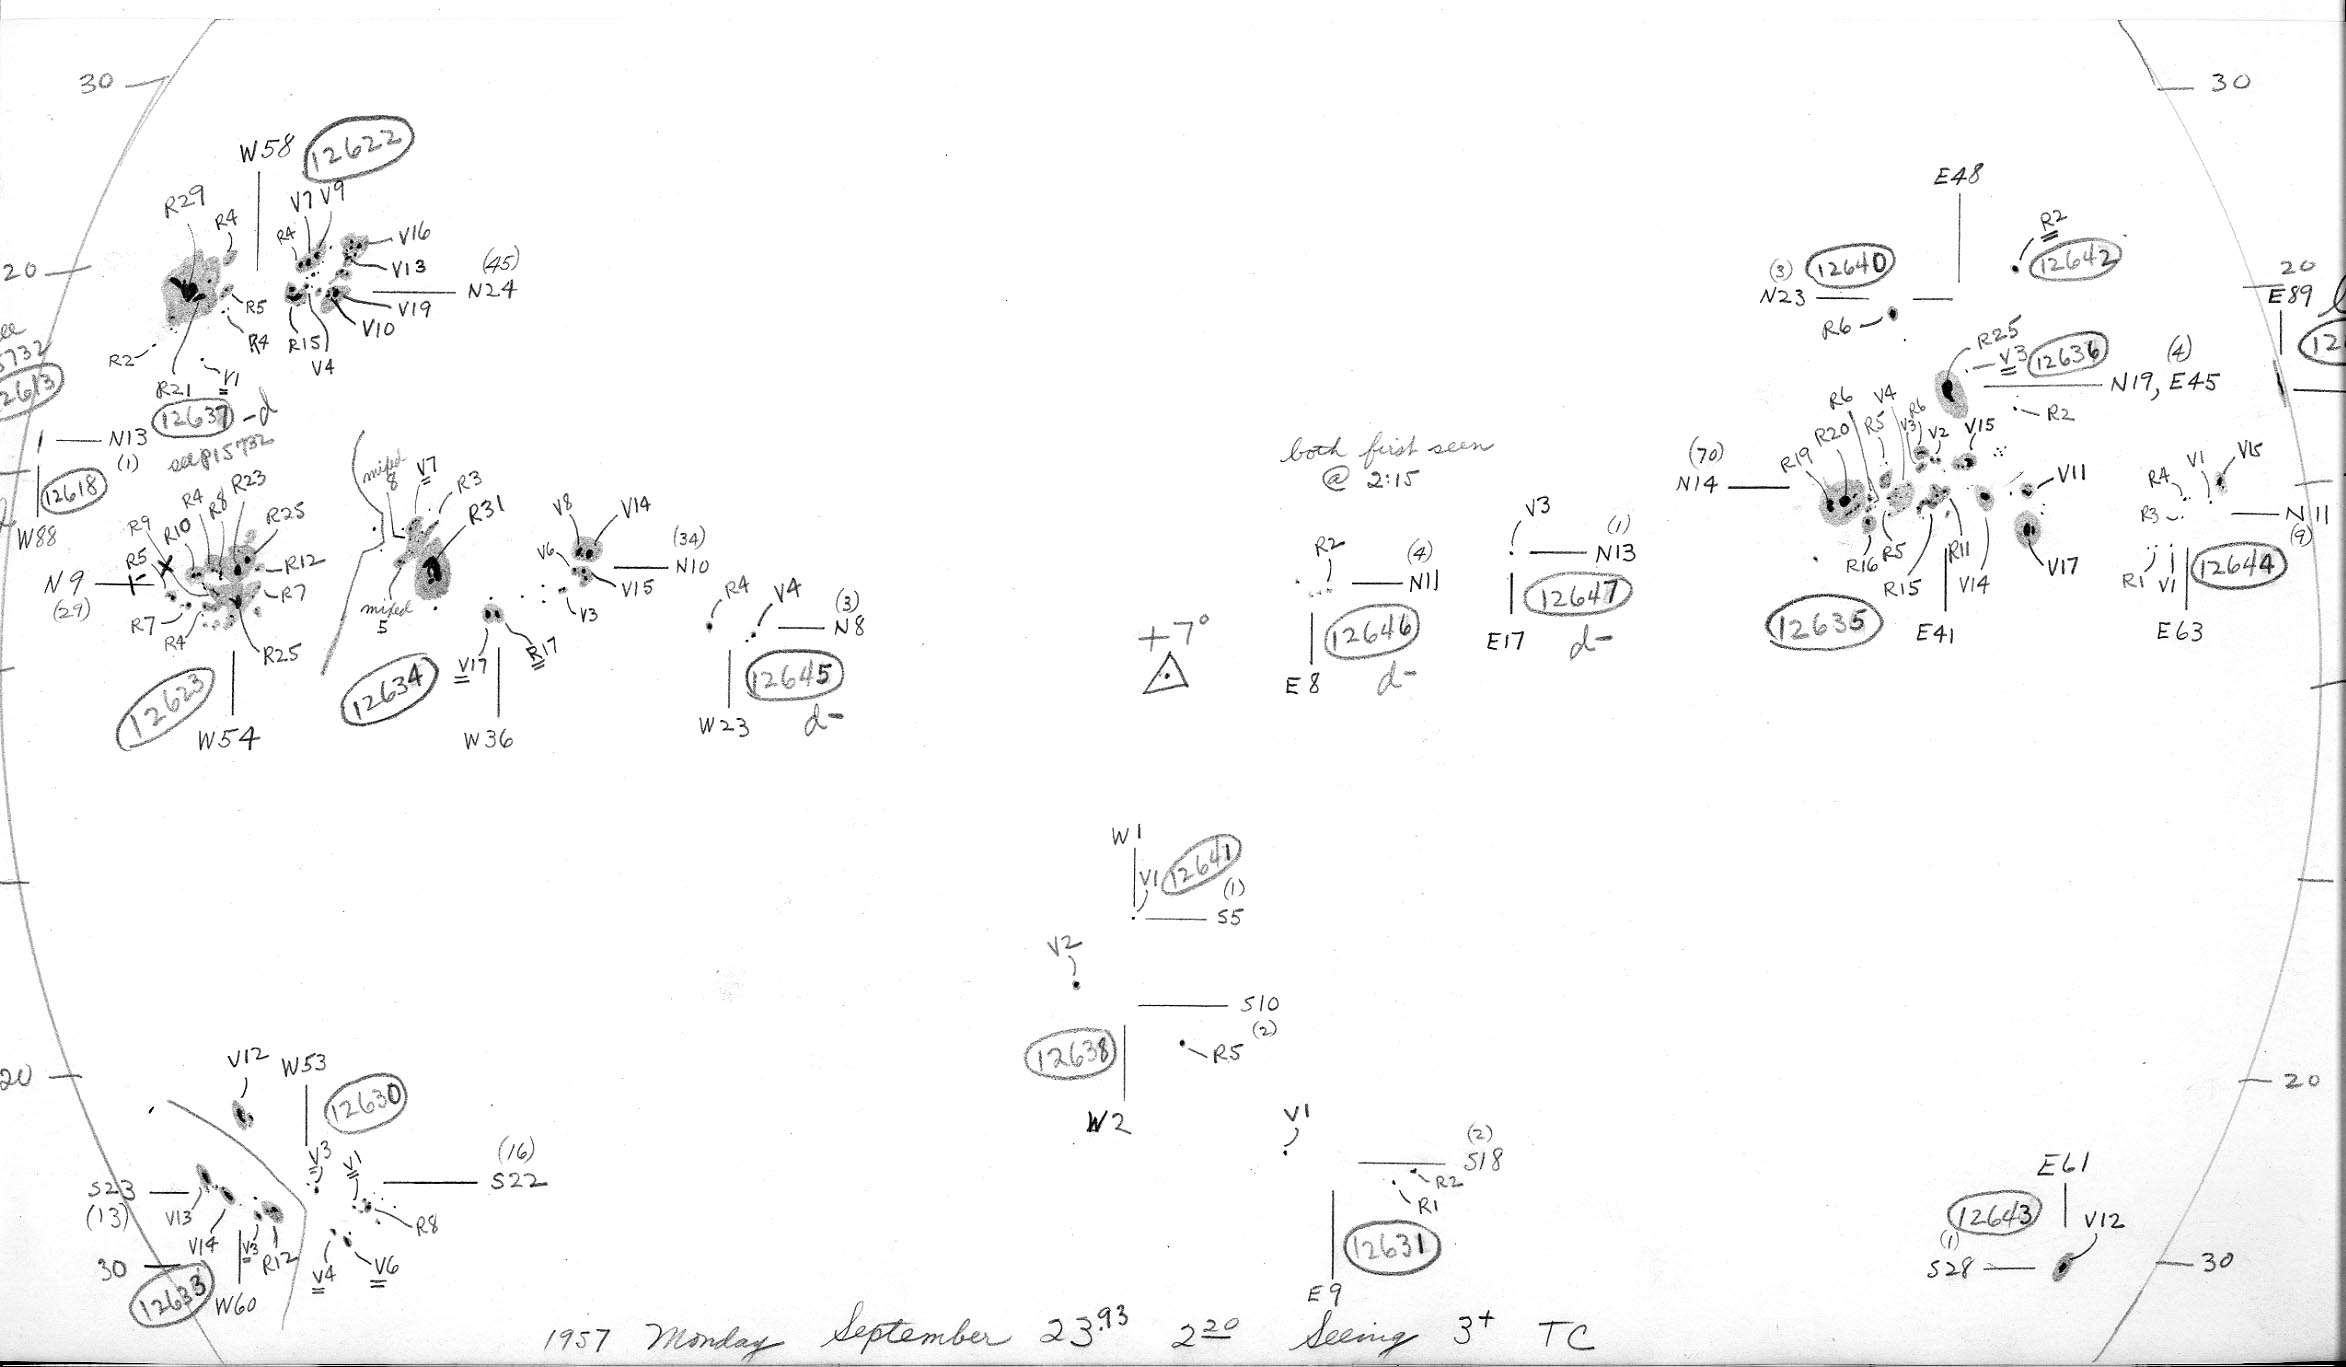 30
30
W58
12622
R29
R4
R4
V7 V9
V16
V13
(45)
N24
V19
V10
R15
V4
R5
R4
R2
R21
V1
12637 -d
see p15732
20
5732
2613
N13
(1)
12618
W88
E48
R2
12642
(3)
12640
N23
R6
20
E89
R25
V3
12636
(4)
N19, E45
R2
R9
R10
R4
R8
R23
R25
R5
N9
(29)
R12
R7
R7
R4
R25
12623
W54
mixed
8
V7
R3
R31
mixed
5
12634
V8
V14
V6
(34)
N10
V15
V3
V17
R17
W36
R4
V4
(3)
N8
12645
d-
W23
both first seen
@ 2:15
+7°
R2
(4)
N11
12646
d-
E8
V3
(1)
N13
12647
d-
E17
(70)
N14
R19
R20
R6
R5
V4
V3
R6
V2
V15
V11
V17
R16
R5
R15
R11
V14
12635
E41
R4
V1
V15
R3
N11
(9)
R1
V1
12644
E63
W1
V1
12641
(1)
S5
V2
S10
(2)
R5
12638
W2
20
V12
W53
12630
V3
V1
(16)
S22
S23
(13)
V13
V14
V3
R12
R8
V4
V6
30
12633
W60
V1
(2)
S18
R2
R1
12631
E9
20
E61
12643
V12
(1)
S28
30
1957 Monday September 23.93 2 20 Seeing 3+ TC